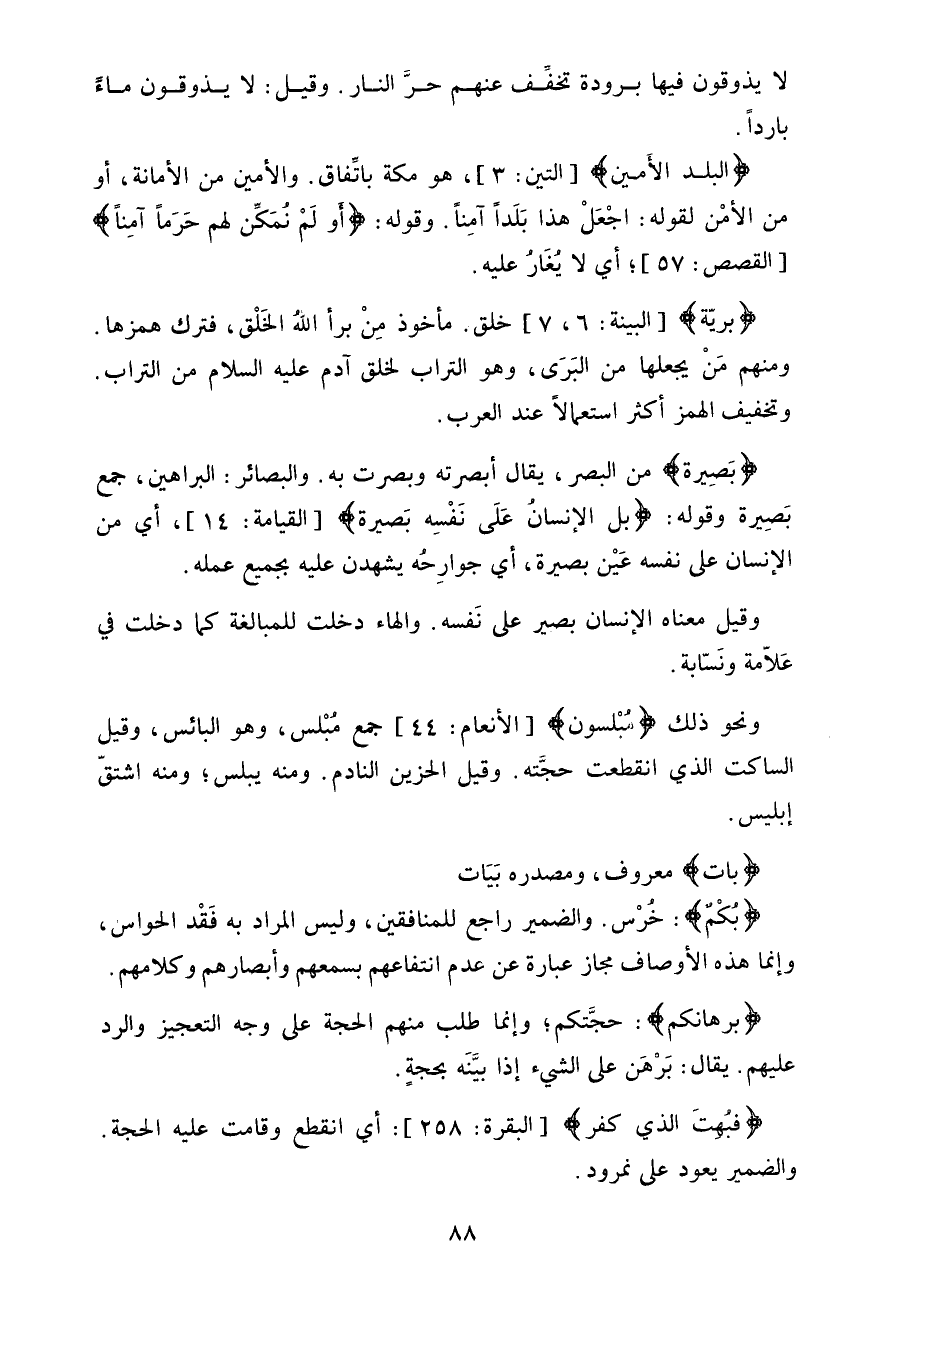 لا يذوقون فيها بـرودة تخفِّـف عنهـم حـرَّ النـار. وقيـل: لا يـذوقـون مـاءً
بارداً.
﴿البلـد الأَمـين﴾ [التين: ٣]، هو مكة باتِّفاق. والأمين من الأمانة، أو
من الأمْن لقوله: اجْعَلْ هذا بَلَداً آمناً. وقوله: ﴿أَو لَمْ نُمَكِّن لهم حَرَماً آمِناً﴾
[القصص: ٥٧]؛ أي لا يُغَارُ عليه.
﴿بريّة﴾ [البينة: ٦، ٧] خلق. مأخوذ مِنْ برأ اللهُ الخَلْق، فترك همزها.
ومنهم مَنْ يجعلها من البَرَى، وهو التراب لخلق آدم عليه السلام من التراب.
وتخفيف الهمز أكثر استعمالاً عند العرب.
﴿بَصِيرة﴾ من البصر، يقال أبصرته وبصرت به. والبصائر: البراهين، جمع
بَصِيرة وقوله: ﴿بل الإنسانُ عَلَى نَفْسِه بَصيرة﴾ [القيامة: ١٤]، أي من
الإنسان على نفسه عَيْن بصيرة، أي جوارحُه يشهدن عليه بجميع عمله.
وقيل معناه الإنسان بصير على نَفسه. والهاء دخلت للمبالغة كما دخلت في
عَلاّمة ونَسّابة.
ونحو ذلك ﴿مُبْلسون﴾ [الأنعام: ٤٤] جمع مُبْلس، وهو البائس، وقيل
الساكت الذي انقطعت حجَّته. وقيل الحزين النادم. ومنه يبلس؛ ومنه اشتقّ
إبليس.
﴿بات﴾ معروف، ومصدره بَيَات
﴿بُكْمٌ﴾: خُرْس. والضمير راجع للمنافقين، وليس المراد به فَقْد الحواس،
وإنما هذه الأوصاف مجاز عبارة عن عدم انتفاعهم بسمعهم وأبصارهم وكلامهم.
﴿برهانكم﴾: حجَّتكم؛ وإنما طلب منهم الحجة على وجه التعجيز والرد
عليهم. يقال: بَرْهَن على الشيء إذا بيَّنَه بحجةٍ.
﴿فبُهِتَ الذي كفر﴾ [البقرة: ٢٥٨]: أي انقطع وقامت عليه الحجة.
والضمير يعود على نمرود.
٨٨